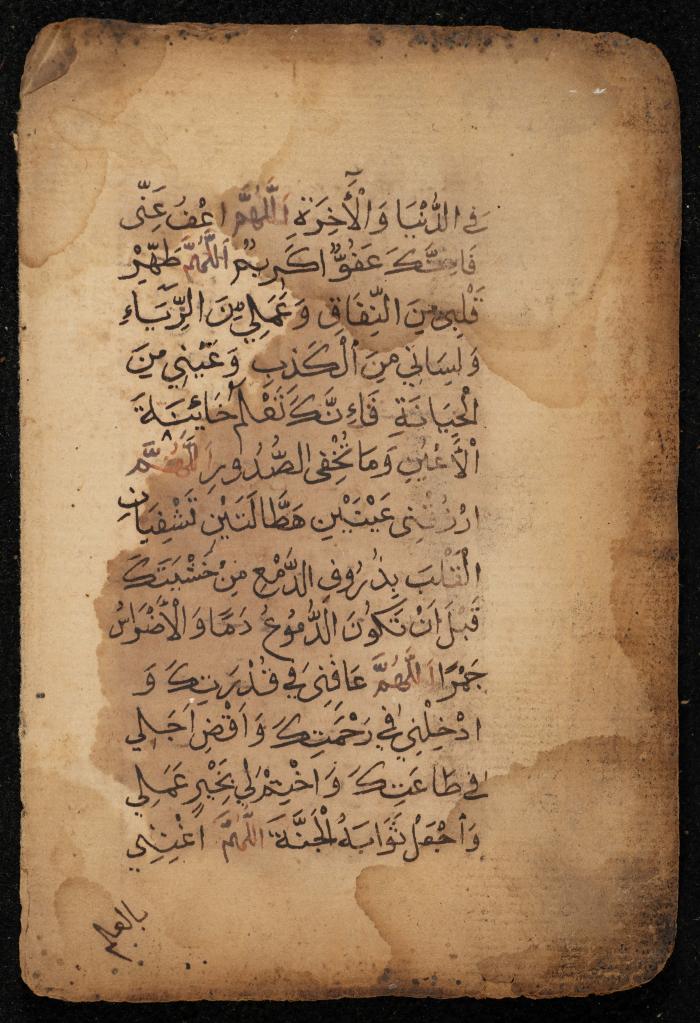 في الدُّنْيَا وَالْأٓخِرَةِ اَللّٰهُمَّ اعْفُ عَنِّى
فَاِنَّكَ عَفُوٌّ كَرِيمٌ اَللّٰهُمَّ طَهِّرْ
قَلْبِى مِنَ النِّفَاقِ وَعَمَلِي مِنَ الرِّيَاءِ
وَلِسَانِي مِنَ الْكَذِبِ وَعَيْنِي مِنَ
الْخِيَانَةِ فَاِنَّكَ تَعْلَمُ خَائِنَةَ
الْأَعْيُنِ وَمَا تُخْفِى الصُّدُورِ اَللّٰهُمَّ
ارْزُقْنِى عَيْنَيْنِ هَطَّالَتَيْنِ تَشْفِيَانِ
الْقَلْبَ بِذُرُوفِ الدَّمْعِ مِنْ خَشْيَتِكَ
قَبْلَ اَنْ تَكُونَ الدُّمُوعُ دَمًا وَالْأَضْرَاسُ
جَمْرًا اَللّٰهُمَّ عَافِنِى فِي قُدْرَتِكَ وَ
ادْخِلْنِي فِي رَحْمَتِكَ وَاقْضِ اَجَلِي
في طَاعَتِكَ وَاخْتِمْ لِي بِخَيْرِ عَمَلِي
وَاجْعَلْ ثَوَابَهُ الْجَنَّةَ اَللّٰهُمَّ اَغْنِنِي
بالعلم